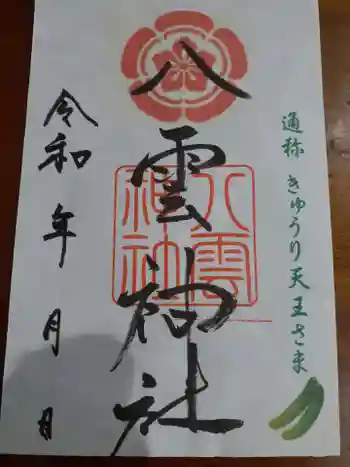 通称 きゅうり天王さま
八雲神社
八雲神社
令和 年 月 日